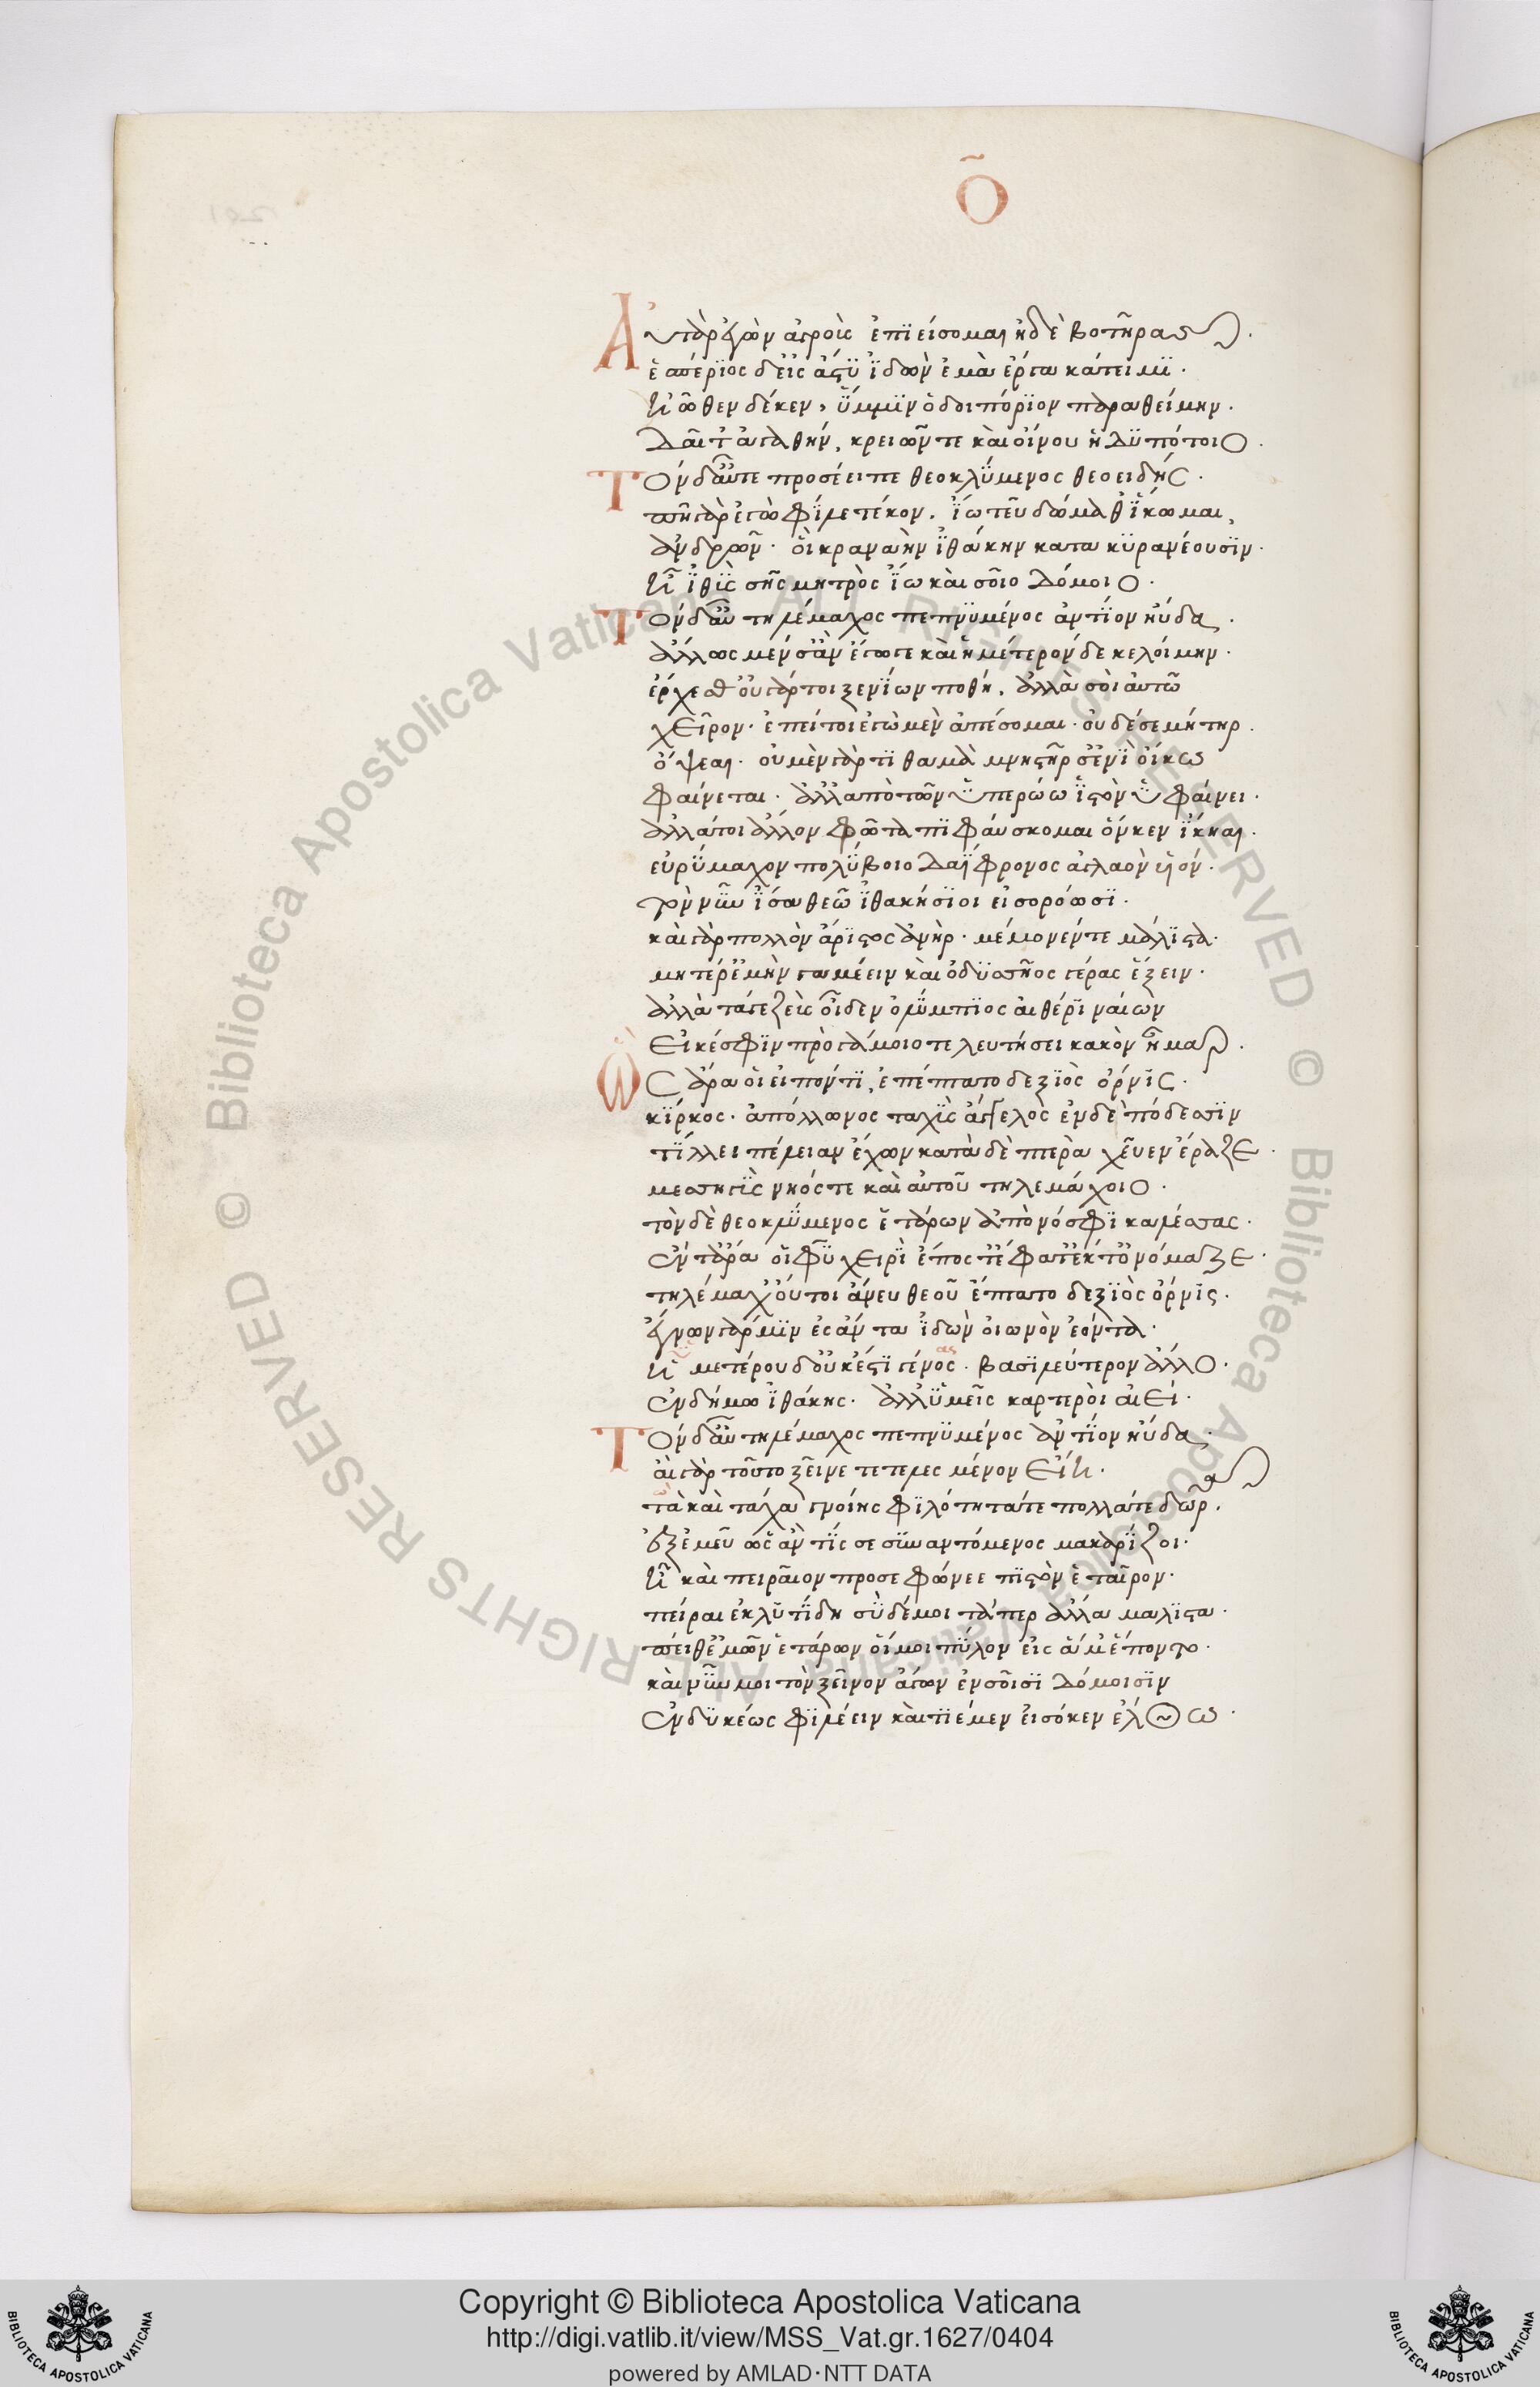 Ὅ
Αὐτὰρ ἐγὼν ἀγροὺς ἐπιείσομαι ἠδὲ βοτῆρας.
ἑσπέριος δ' εἰς ἄστυ ἰδὼν ἐμὰ ἔργα κάτειμι.
ἠῶθεν δέ κεν, ὔμμιν ὁδοιπόριον παραθείμην.
δαῖτ' ἀγαθήν, κρειῶν τε καὶ οἴνου ἡδυπότοιο.
Τὸν δ' αὖτε προσέειπε θεοκλύμενος θεοειδής.
πῆ γὰρ ἐγὼ φίλε τέκον. ἴω τεῦ δώμαθ' ἵκωμαι,
ἀνδρῶν. οἳ κραναὴν ἰθάκην κατα κυρανέουσιν.
ἦ ἰθὺς σῆς μητρὸς ἴω καὶ σοῖο δόμοιο.
Τὸν δ' αὖ τηλέμαχος πεπνυμένος ἀντίον ηὔδα.
ἄλλως μέν σ' ἂν ἔγωγε καὶ ἡμέτερόνδε κελοίμην.
ἔρχεσθ' οὐ γάρ τοι ξενίων ποθή. ἀλλὰ σοὶ αὐτῶ
χεῖρον. ἐπεί τοι ἐγὼ μὲν ἀπέσομαι. οὐδέ σε μήτηρ.
ὄψεαι. οὐ μὲν γάρ τι θαμὰ μνηστῆρσ' ἐνὶ οἴκω
φαίνεται. ἀλλ' ἀπὸ τῶν ὑπερώω ἱστὸν ὑφαίνει.
ἀλλά τοι ἄλλον φῶτα πιφαύσκομαι ὅν κεν ἵκηαι.
εὐρύμαχον πολύβοιο δαΐφρονος ἀγλαὸν υἱόν.
τὸν νῦν ἶσα θεῶ ἰθακήσιοι εἰσορόωσι.
καὶ γὰρ πολλὸν ἄριστος ἀνήρ. μέμονέν τε μάλιστα.
μητέρ' ἐμὴν γαμέειν καὶ ὀδυσσῆος γέρας ἕξειν.
ἀλλὰ τάγε ζεὺς οἶδεν ὀλύμπιος αἰθέρι ναίων
εἴ κέ σφιν πρὸ γάμοιο τελευτήσει κακὸν ἦμαρ.
Ὣς ἄρα οἱ εἰπόντι, ἐπέπτατο δεξιὸς ὄρνις.
κίρκος. ἀπόλλωνος ταχὺς ἄγγελος ἐν δὲ πόδεσσιν
τίλλει πέλειαν ἔχων κατὰ δὲ πτερὰ χεῦεν ἔραζε.
μεσσηγὺς νηός τε καὶ αὐτοῦ τηλεμάχοιο.
τὸν δὲ θεοκλύμενος ἑτάρων ἀπὸ νόσφι καλέσσας.
ἔν τ' ἄρα οἱ φῦ χειρὶ ἔπος τ' ἔφατ' ἔκ τ' ὀνόμαζε.
τηλέμαχ' οὔτοι ἄνευ θεοῦ ἔπτατο δεξιὸς ὄρνις.
ἔγνων γάρ μιν ἐς ἄν τα ἰδὼν οἰωνὸν ἐόντα.
ἡμετέρου δ' οὐκ ἔστι γένος. βασιλεύτερον ἄλλο.
ἐν δήμω ἰθάκης. ἀλλ' ὑμεῖς καρτεροὶ αἰεί.
Τὸν δ' αὖ τηλέμαχος πεπνυμένος ἀντίον ηὔδα.
αἲ γὰρ τοῦτο ξεῖνε τετελεσμένον εἴη.
τῶ καὶ τάχα γνοίης φιλότητά τε πολλά τε δῶρα.
ἐξ ἐμεῦ ὡς ἄν τίς σε συναντόμενος μακαρίζοι.
ἦ καὶ πείραιον προσεφώνεε πιστὸν ἑταῖρον.
πείραιε κλυτίδη σὺ δέ μοι τά περ ἄλλα μάλιστα.
πείθε' ἐμῶν ἑτάρων οἵ μοι πύλον εἰς ἅμ' ἕποντο.
καὶ νῦν μοι τὸν ξεῖνον ἄγων ἐν σοῖσι δόμοισιν
ἐνδυκέως φιλέειν καὶ τιέμεν εἰσόκεν ἔλθω.
Copyright © Biblioteca Apostolica Vaticana
http://digi.vatlib.it/view/MSS_Vat.gr.1627/0404
powered by AMLAD·NTT DATA